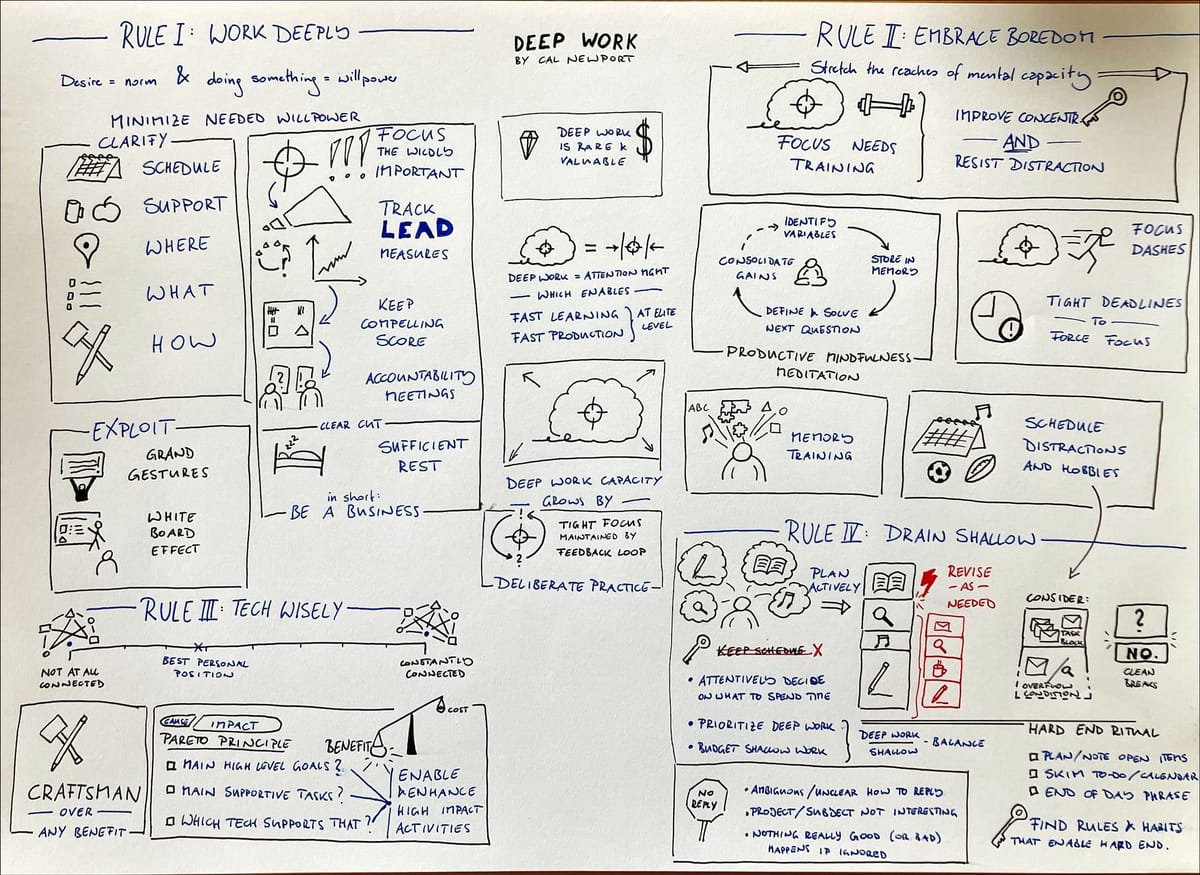 DEEP WORK
BY CAL NEWPORT
RULE I: WORK DEEPLY
Desire = norm & doing something = willpower
MINIMIZE NEEDED WILLPOWER
CLARIFY
SCHEDULE
SUPPORT
WHERE
WHAT
HOW
!!!
FOCUS
THE WILDLY
IMPORTANT
TRACK
LEAD
MEASURES
?
KEEP
COMPELLING
SCORE
? !
ACCOUNTABILITY
MEETINGS
CLEAR CUT
zzz
SUFFICIENT
REST
in short:
BE A BUSINESS
EXPLOIT
GRAND
GESTURES
WHITE
BOARD
EFFECT
DEEP WORK
IS RARE &
VALUABLE
$
=
DEEP WORK = ATTENTION MGMT
WHICH ENABLES
FAST LEARNING
FAST PRODUCTION
AT ELITE
LEVEL
DEEP WORK CAPACITY
GROWS BY
!
?
TIGHT FOCUS
MAINTAINED BY
FEEDBACK LOOP
DELIBERATE PRACTICE
RULE II: EMBRACE BOREDOM
Stretch the reaches of mental capacity
FOCUS NEEDS
TRAINING
IMPROVE CONCENTR.
AND
RESIST DISTRACTION
IDENTIFY
VARIABLES
STORE IN
MEMORY
DEFINE & SOLVE
NEXT QUESTION
CONSOLIDATE
GAINS
PRODUCTIVE MINDFULNESS
MEDITATION
FOCUS
DASHES
!
TIGHT DEADLINES
TO
FORCE FOCUS
ABC
MEMORY
TRAINING
SCHEDULE
DISTRACTIONS
AND HOBBIES
RULE III: TECH WISELY
NOT AT ALL
CONNECTED
BEST PERSONAL
POSITION
CONSTANTLY
CONNECTED
CRAFTSMAN
OVER
ANY BENEFIT
CAUSE / IMPACT
PARETO PRINCIPLE
BENEFIT
COST
MAIN HIGH LEVEL GOALS?
MAIN SUPPORTIVE TASKS?
WHICH TECH SUPPORTS THAT?
ENABLE
& ENHANCE
HIGH IMPACT
ACTIVITIES
RULE IV: DRAIN SHALLOW
PLAN
ACTIVELY
REVISE
-AS-
NEEDED
KEEP SCHEDULE X
• ATTENTIVELY DECIDE
ON WHAT TO SPEND TIME
• PRIORITIZE DEEP WORK
• BUDGET SHALLOW WORK
DEEP WORK
SHALLOW
- BALANCE
NO
REPLY
• AMBIGNONS/UNCLEAR HOW TO REPLY
• PROJECT/SUBJECT NOT INTERESTING
• NOTHING REALLY GOOD (OR BAD)
HAPPENS IF IGNORED
CONSIDER:
TASK
BLOCK
OVERFLOW
CONDITION
?
NO.
CLEAN
BREAKS
HARD END RITUAL
PLAN/NOTE OPEN ITEMS
SKIM TO-DO/CALENDAR
END OF DAY PHRASE
FIND RULES & HABITS
THAT ENABLE HARD END.